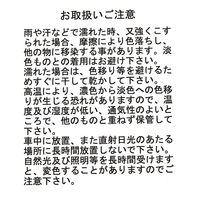 お取扱いご注意
雨や汗などで濡れた時、又強くこす
られた場合、摩擦により色落ちし、
他の物に移染する事があります。淡
色ものとの着用はお避け下さい。
濡れた場合は、色移り等を避けるた
めすぐに干して乾かして下さい。
高温により、濃色から淡色への色移
りが生じる恐れがありますので、温
度及び湿度が低い、通気性のよいと
ころで、他のものと重ねず保管して
下さい。
車中に放置、また直射日光のあたる
場所に長時間放置しないで下さい。
自然光及び照明等を長時間受けます
と、変色することがありますのでご
注意下さい。